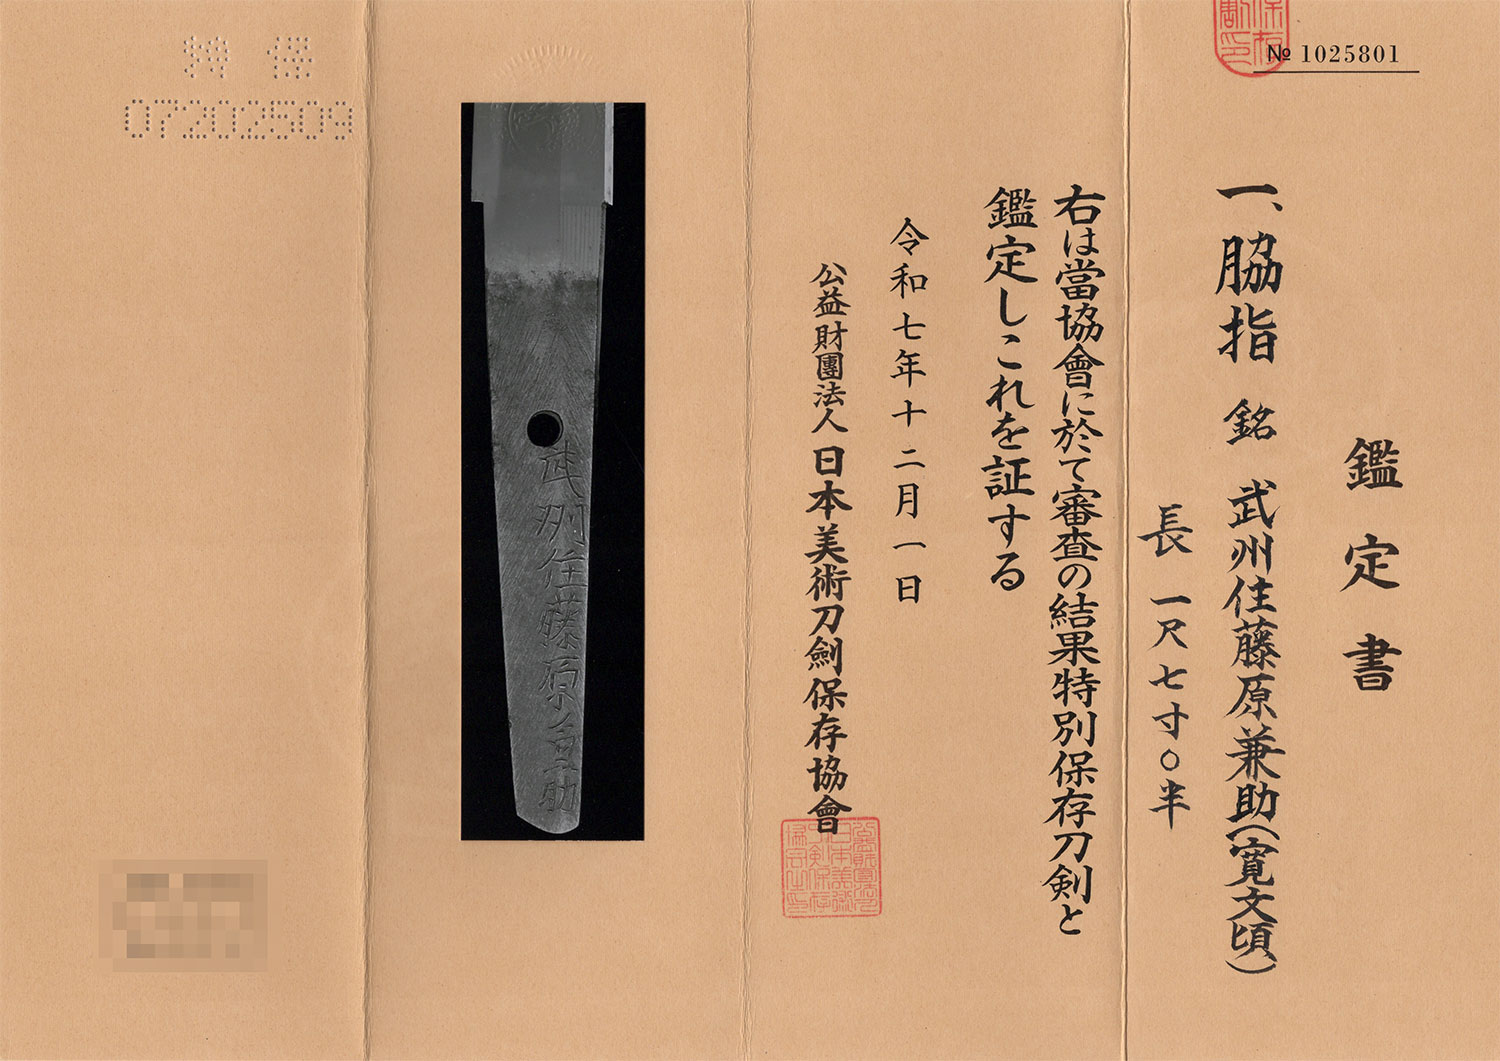 № 1025801
鑑定書
一、脇指 銘 武州住藤原兼助(寛文頃)
長 一尺七寸〇半
右は當協會に於て審査の結果特別保存刀剣と
鑑定しこれを証する
令和七年十二月一日
公益財團法人 日本美術刀劍保存協會
武州住藤原兼助
特保
07202509